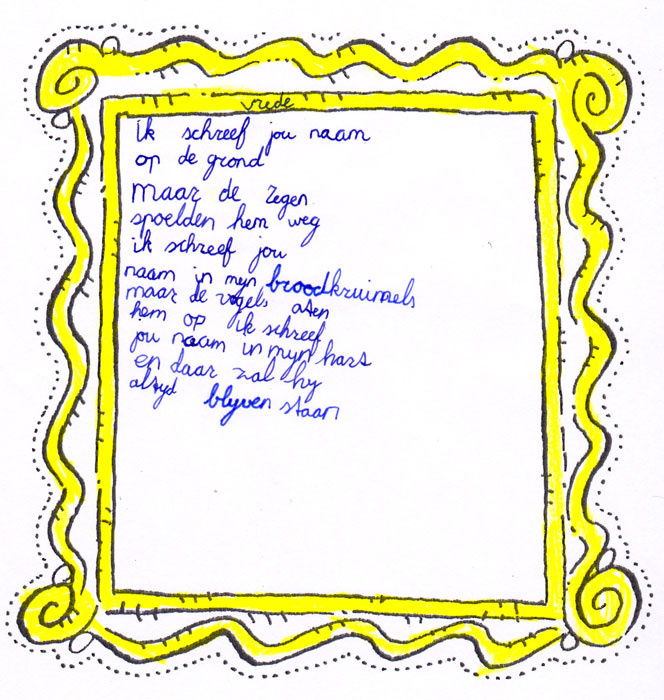 vrede
ik schreef jou naam
op de grond
maar de regen
spoelden hem weg
ik schreef jou
naam in mijn broodkruimels
maar de vogels aten
hem op ik schreef
jou naam in mijn hart
en daar zal hij
altijd blijven staan